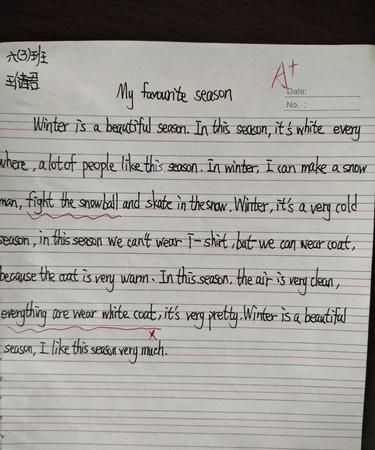 六(3)班
A+
Date:
No. :
My favourite season
Winter is a beautiful season. In this season, it's white every
where, a lot of people like this season. In winter, I can make a snow
man, fight the snowball and skate in the snow. Winter, it's a very cold
season, in this season we can't wear T-shirt, but we can wear coat,
because the coat is very warm. In this season, the air is very clean,
everything are wear white coat, it's very pretty. Winter is a beautiful
season, I like this season very much.